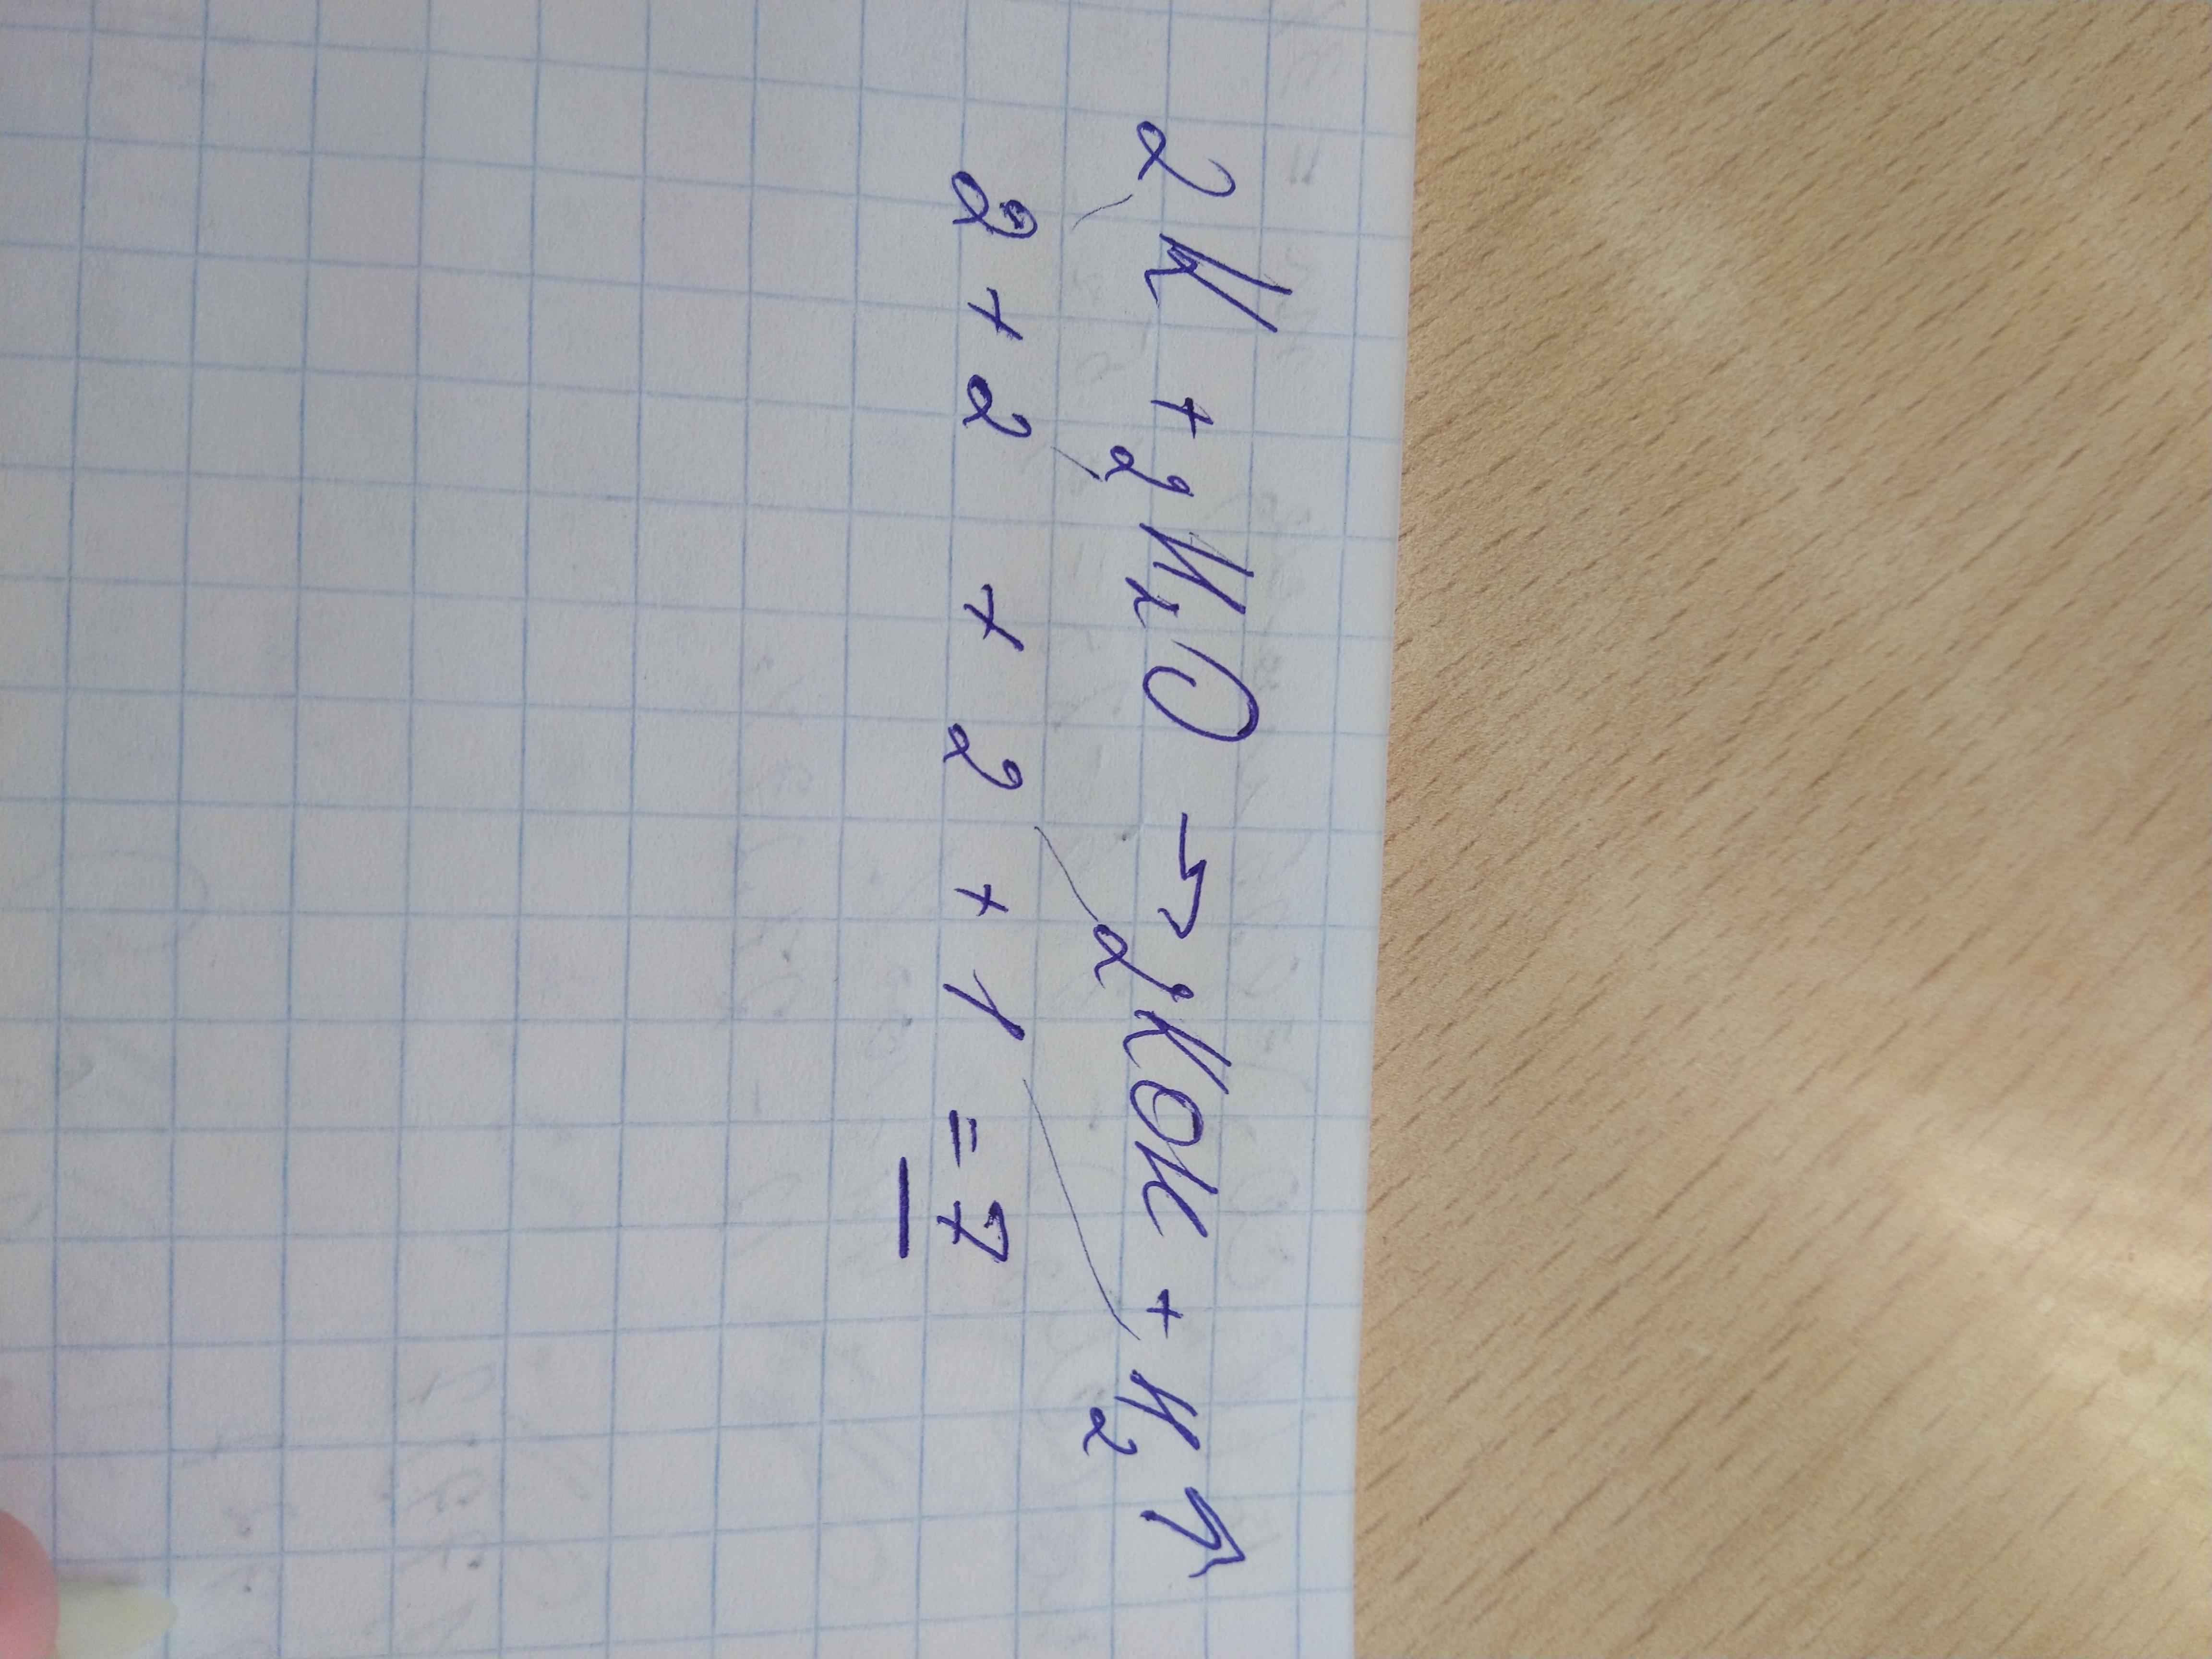 2K + 2H₂O → 2KOH + H₂↑
2 + 2 + 2 + 1 = 7